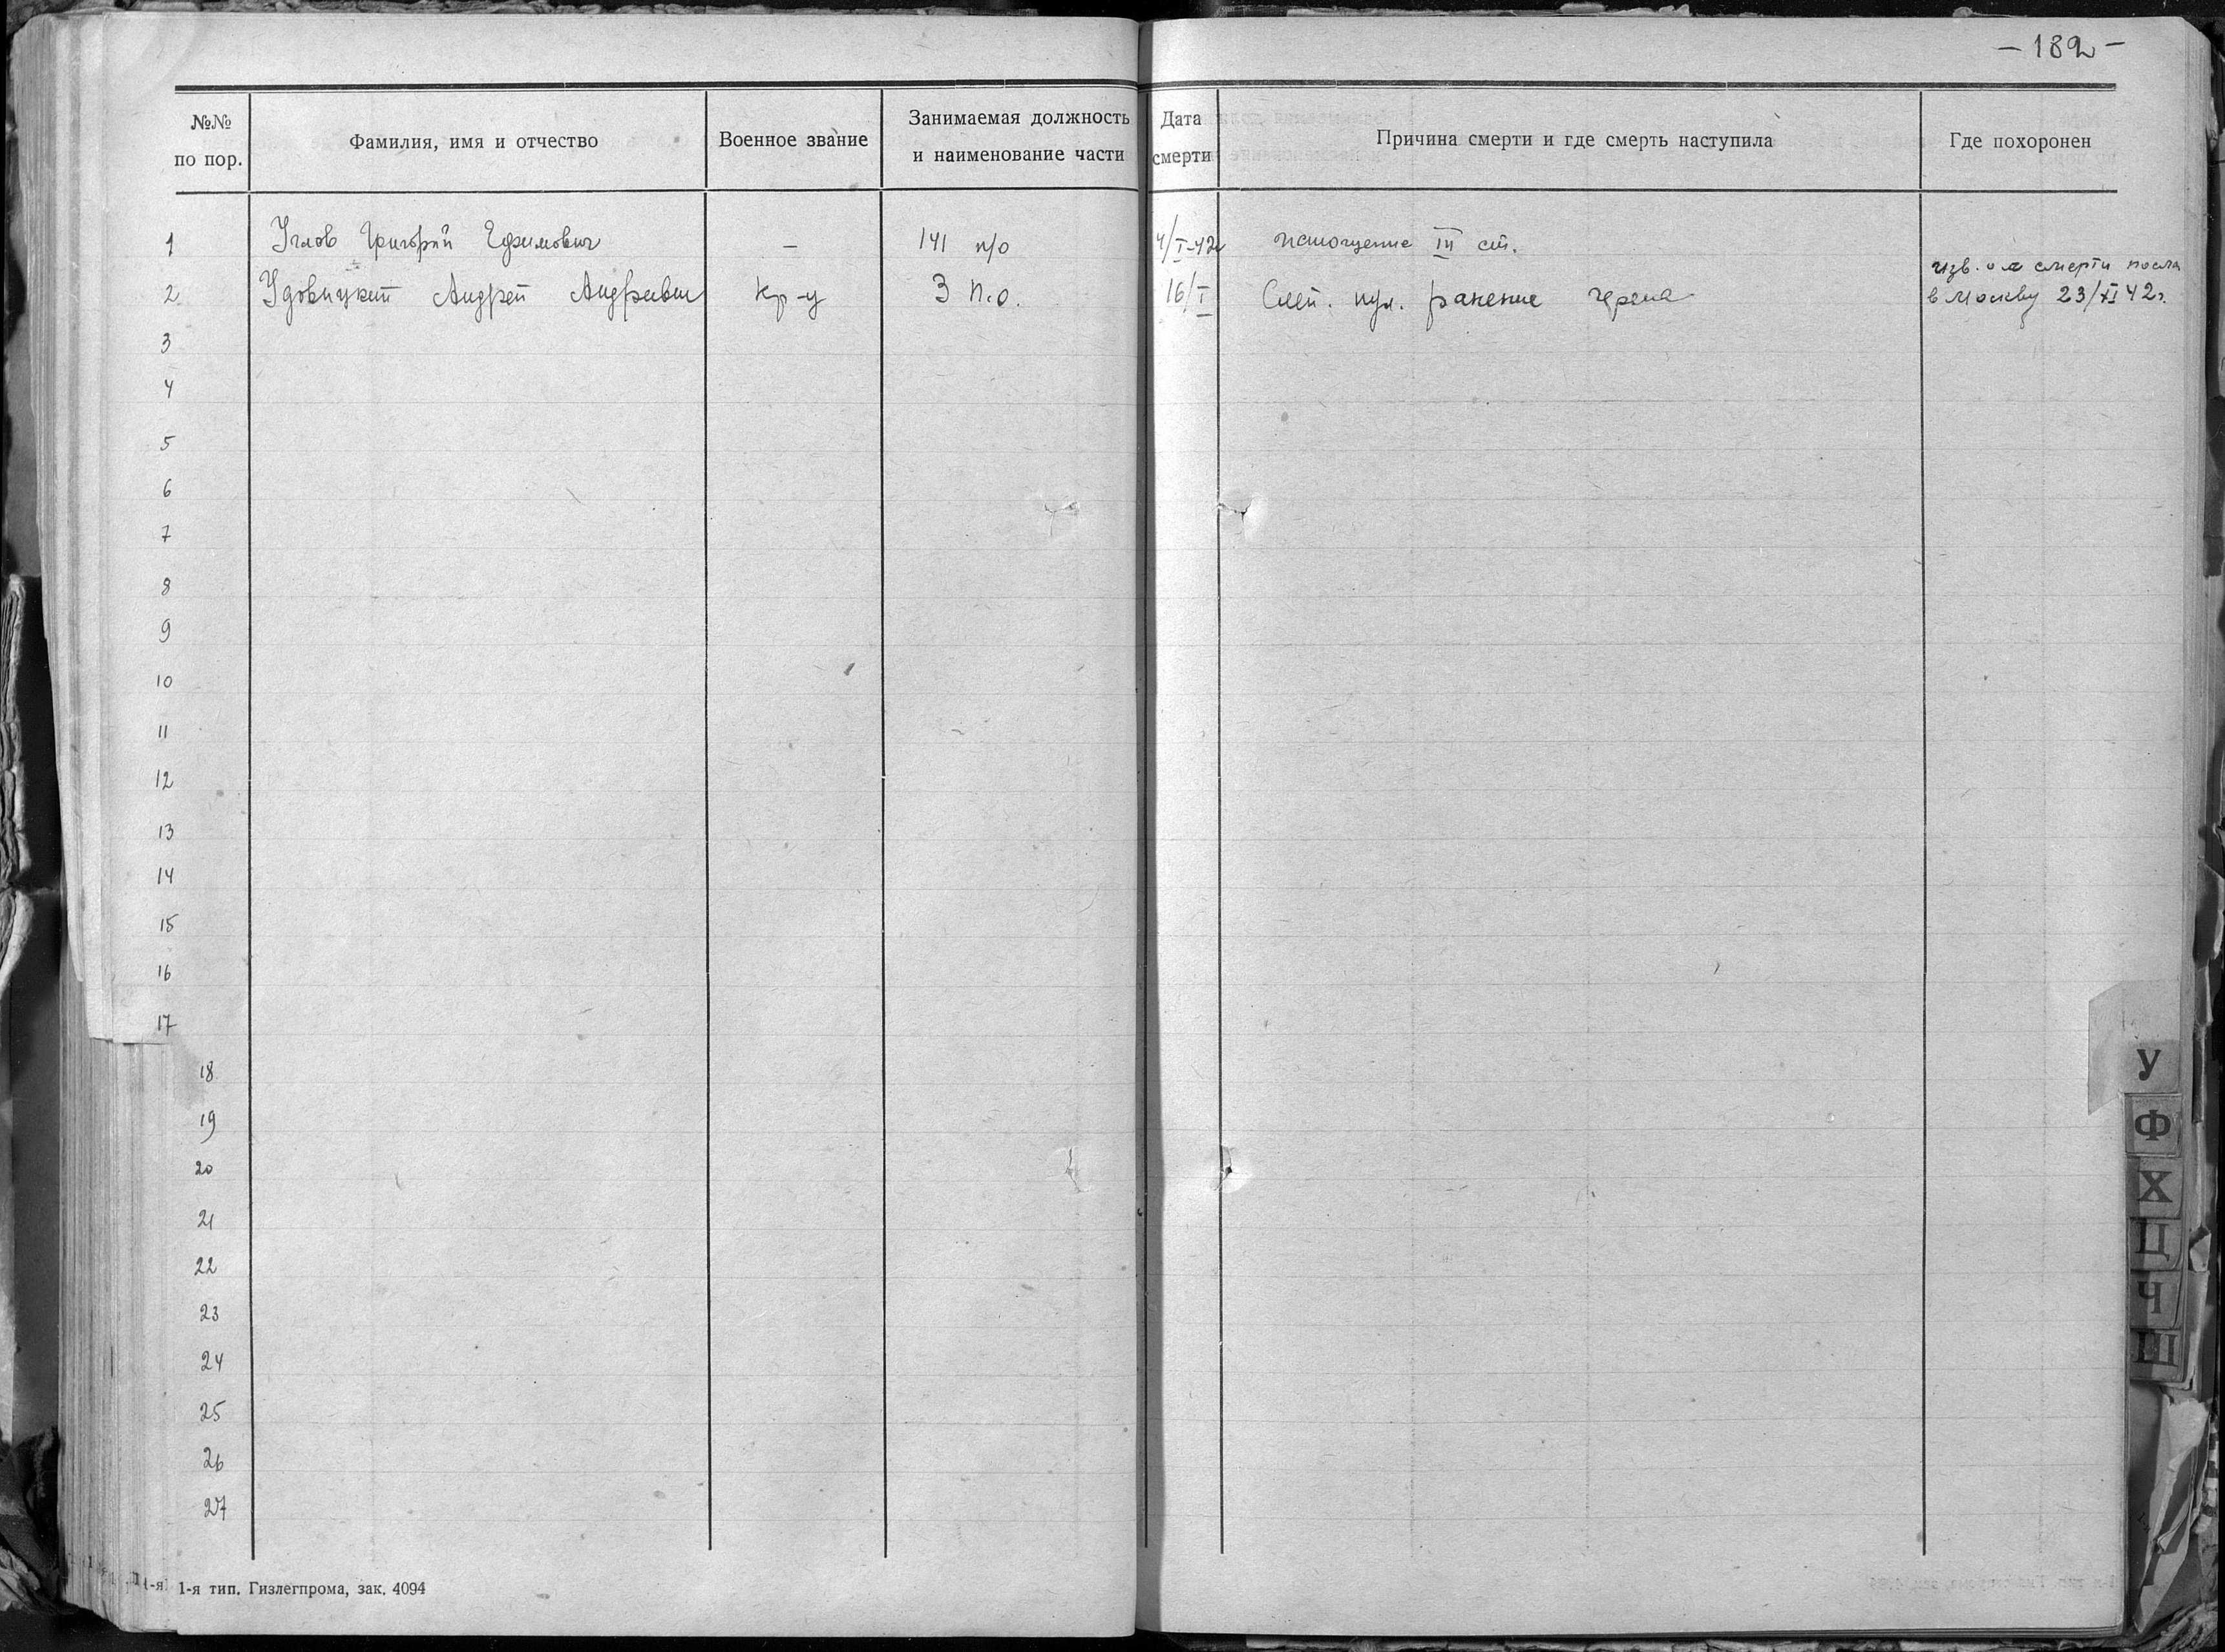 – 182 –
№№ по пор.
Фамилия, имя и отчество
Военное звание
Занимаемая должность и наименование части
Дата смерти
Причина смерти и где смерть наступила
Где похоронен
1 Углов Григорий Ефимович – 141 п/о 4/I-42 истощение III ст.
2 Удовицкий Андрей Андреевич кр-ц 3 п.о. 16/I Слеп. пул. ранение черепа
изв. о смерти посла
в Москву 23/XI 42г.
3
4
5
6
7
8
9
10
11
12
13
14
15
16
17
18
19
20
21
22
23
24
25
26
27
У
Ф
Х
Ц
Ч
Ш
1-я тип. Гизлегпрома, зак. 4094